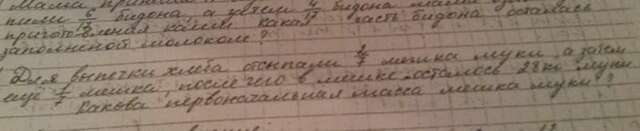 Мама
пили бидона, а затем 4/7 бидона
приготовления каши. Какая часть бидона осталась
заполненной молоком?
Для выпечки хлеба отсыпали мешка муки, а затем
ещё мешка, после чего в мешке осталось 28 кг муки
Какова первоначальная масса мешка муки?